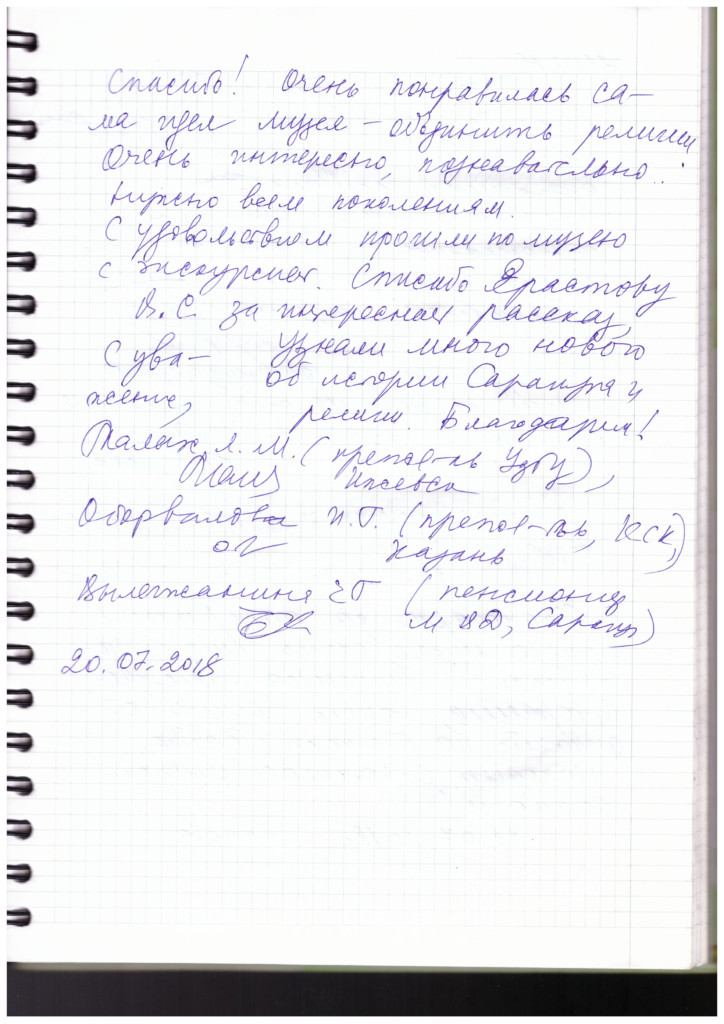 Спасибо! Очень понравилась са-
ма идея музея – объединить религии
Очень интересно, познавательно..
Нужно всем поколениям.
С удовольствием прошли по музею
с экскурсией. Спасибо Ярастову
В.С. за интересный рассказ,
Узнали много нового
об истории Сарапула и
религии. Благодарим!
С ува-
жение,
Малых Л.М. (препод-ль УдГУ),
Ижевск
Оборвалова Н.Г. (препод-ль, КСК,)
Казань
Вылегжанина ЕГ (пенсионер
МВД, Сарапул)
20.07.2018